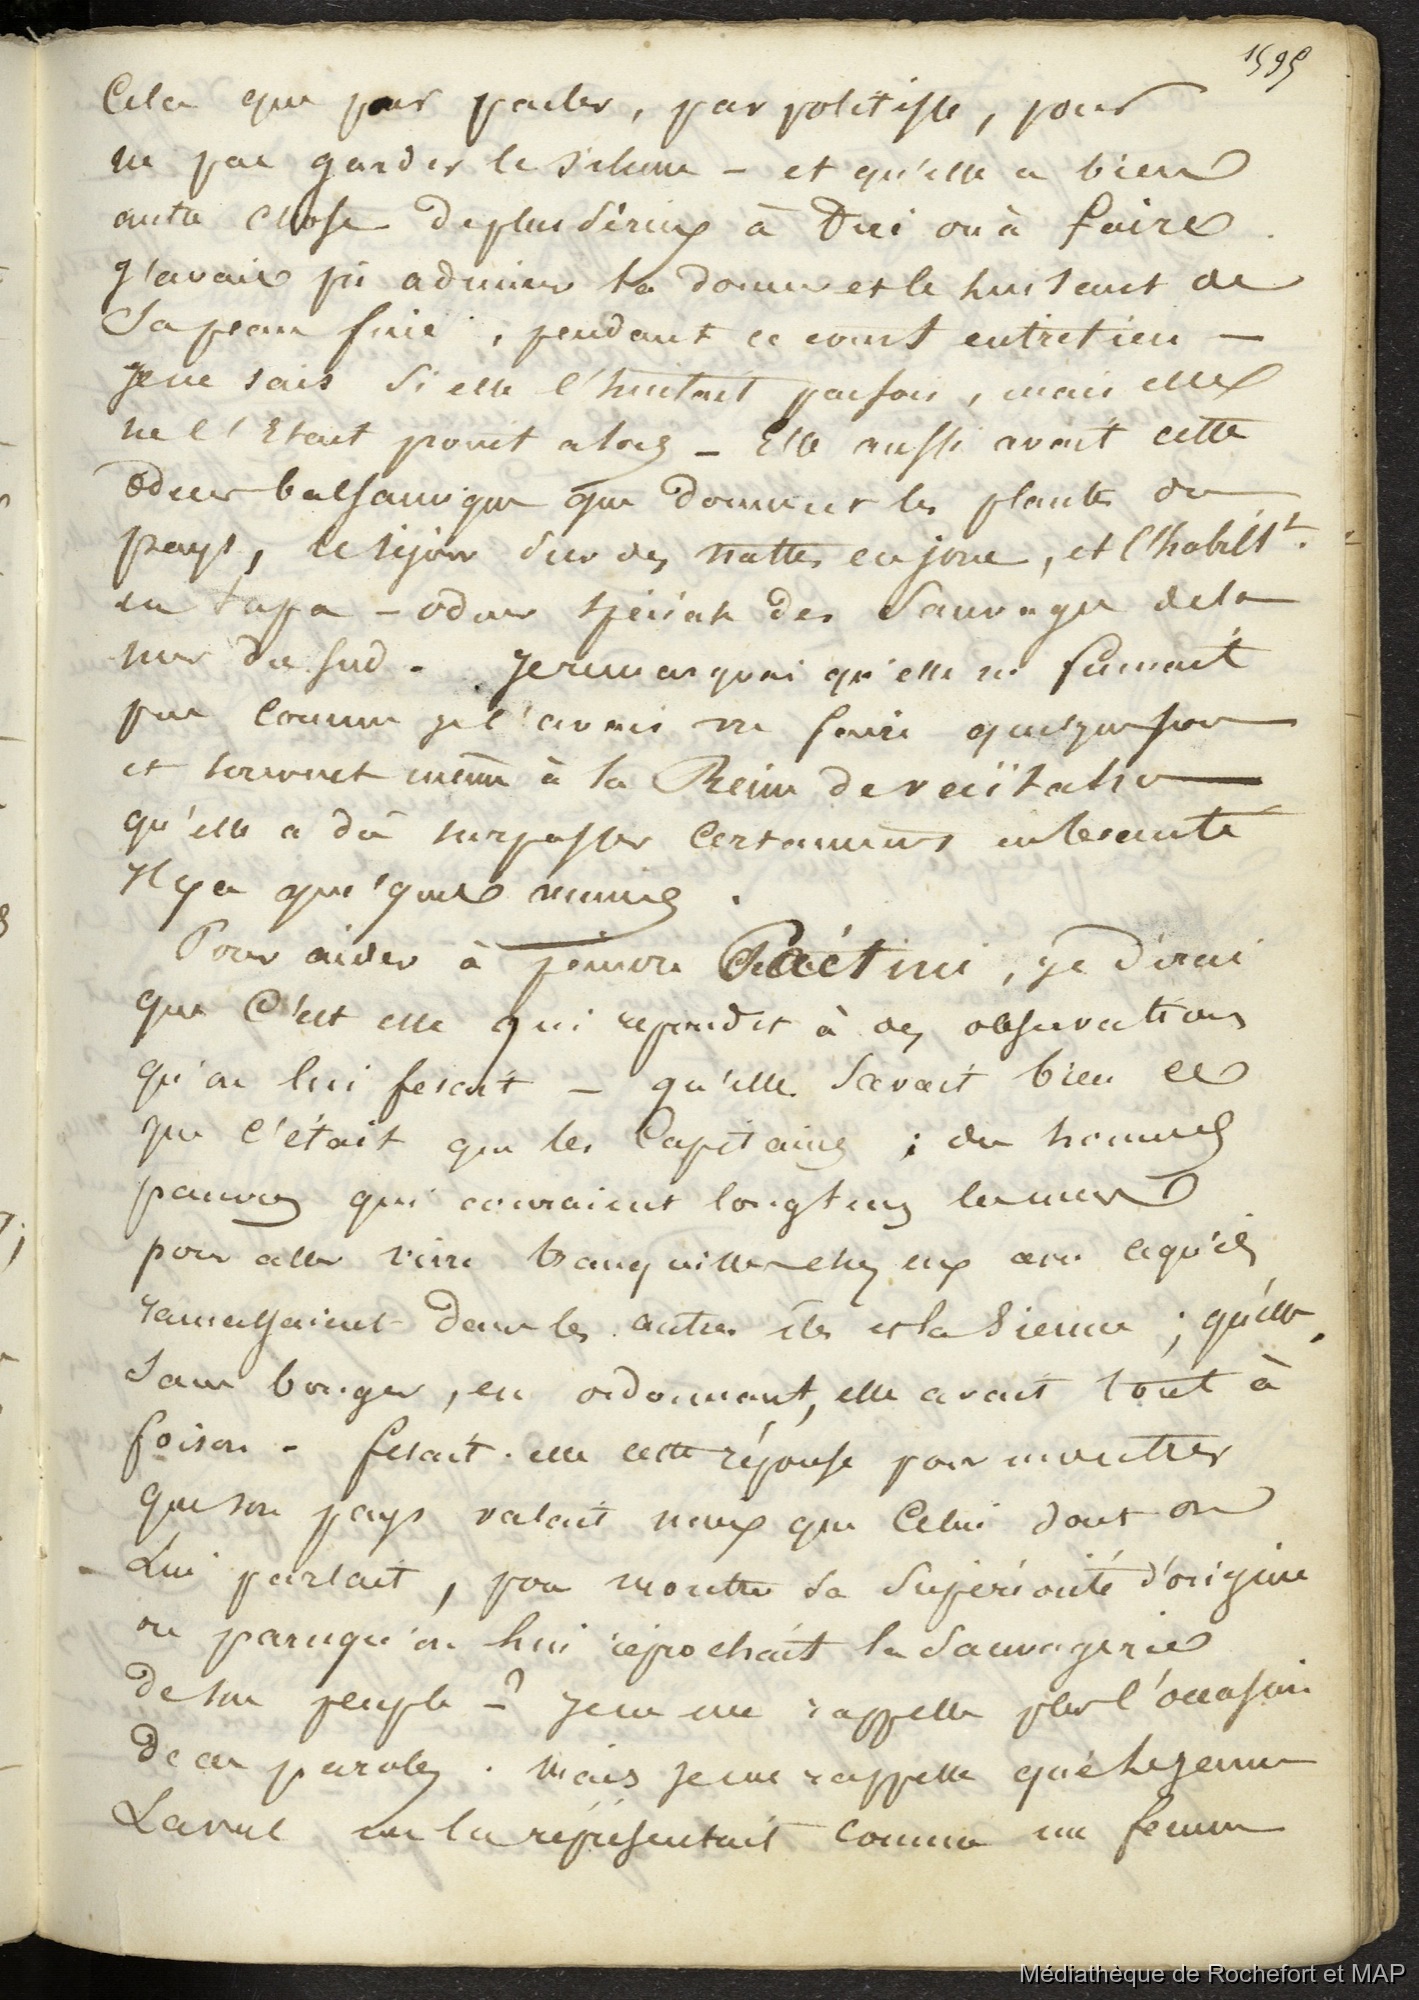 1595
Cela que pour parler, par politisse, pour
ne pas garder le silence – et qu'elle a bien
autre chose de plus sérieux à Dire ou à faire.
J'avais pû admirer la douceur et le luisant de
Sa peau fine, pendant ce court entretien –
Je ne sais Si elle l'huilait parfois, mais elle
ne l'Etait point alors – Elle aussi avait cette
odeur balsamique que donnent les plantes du
pays, le séjour Sur des nattes en jonc, et l'habillt.
en tapa – odeur spéciale des Sauvages de la
mer du Sud – Je remarquai qu'elle ne fumait
pas comme je l'avais vu faire quelquefois
et souvent même à la Reine de vaïtahu
qu'elle a dû surpasser certainement en beauté
Il y a quelques années.
Pour aider à peindre Paétini, je dirai
que C'est elle qui repondit à des observations
qu'on lui fesait – qu'elle Savait bien ce
que c'était que les Capitaines ; des hommes
pauvres qui couraient longtems les mers
pour aller vivre tranquilles chez eux avec ce qu'ils
ramassaient dans les autres îles et la Sienne ; qu'elle,
Sans bouger, en ordonnant, elle avait tout à
foison – fesait-elle cette réponse pour montrer
que son pays valait mieux que Celui dont on
Lui parlait, pour montrer Sa Supériorité d'origine
ou parce qu'on lui réprochait la Sauvagerie
de son peuple – ? Je ne me rappelle plus l'occasion
de ces paroles. Mais je me rappelle que le jeune
Laval me la réprésentait comme une femme
Médiathèque de Rochefort et MAP